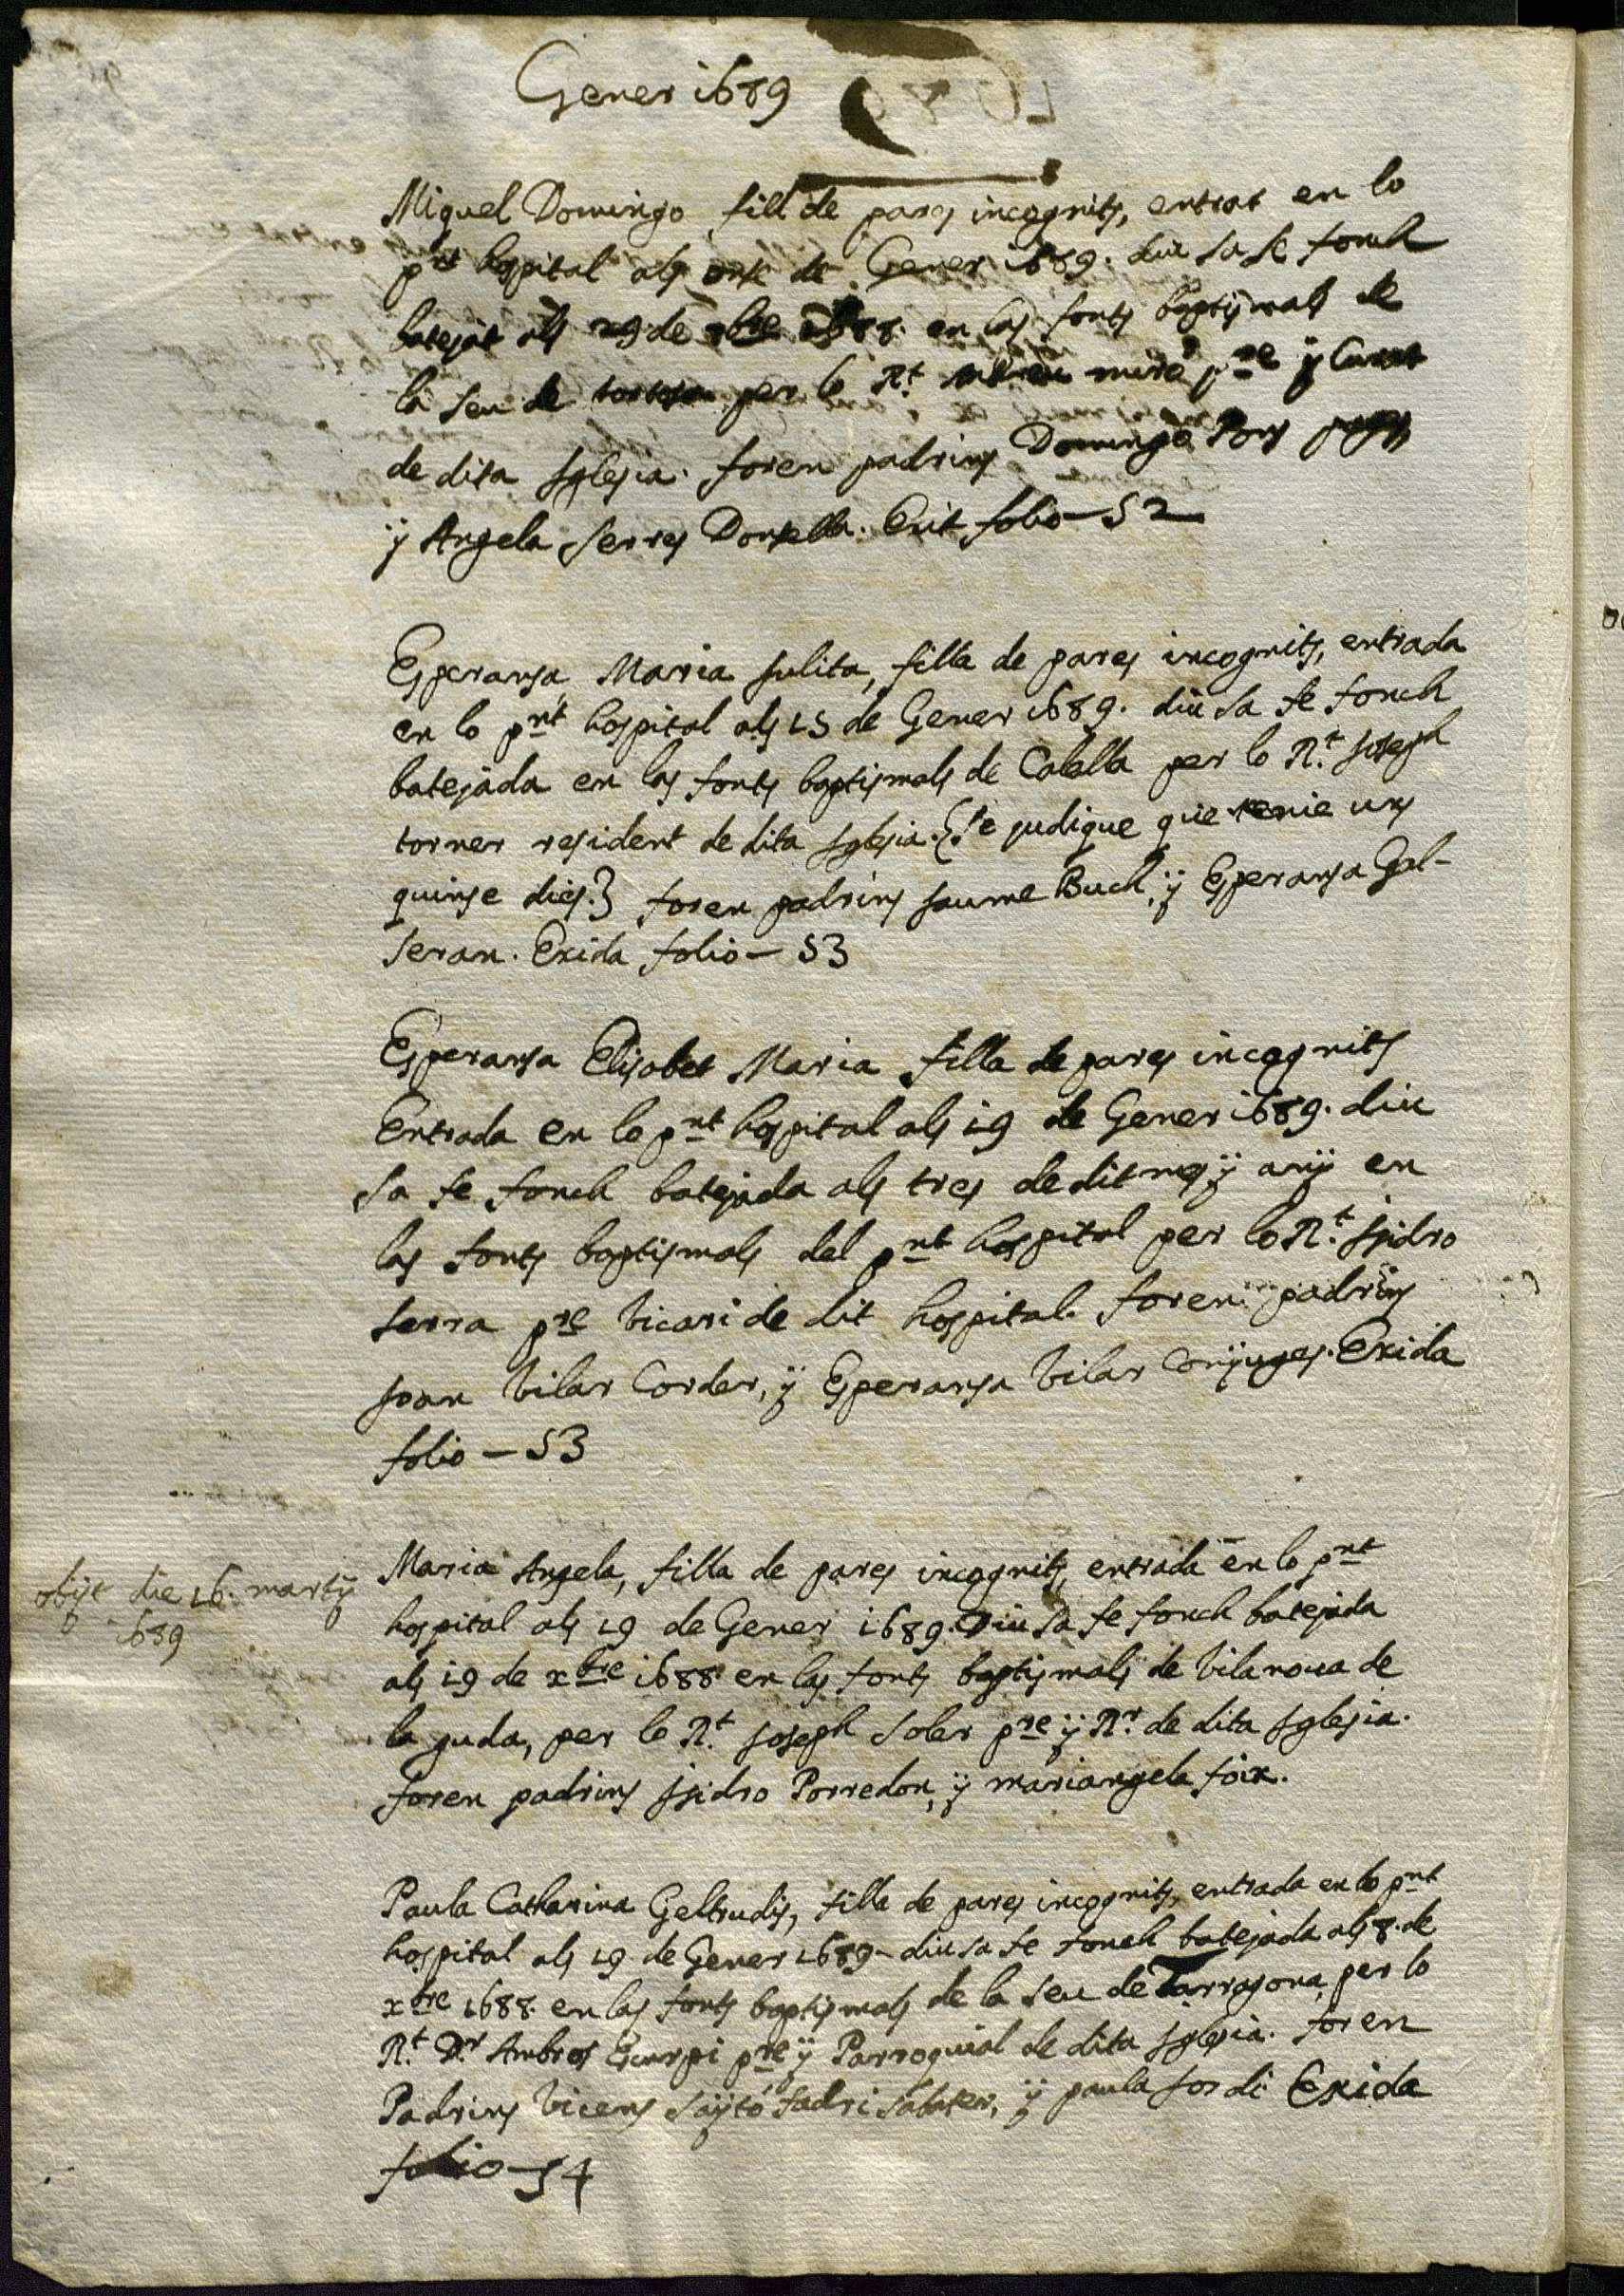 Gener 1689
Miquel Domingo fill de pares incognits, entrat en lo
pnt hospital als onse de Gener 1689. diu sa se fonch
batejat als 29 de xbre 1688. en las fonts baptismals de
la Seu de tortosa per lo Rt. miró pre y Curat
de dita Iglesia. foren padrins Domingo Pons pages
y Angela Serres Donsella. Exit folio - 52
Esperansa Maria Julita, filla de pares incognits, entrada
en lo pnt hospital als 15 de Gener 1689. diu sa se fonch
batejada en las fonts baptismals de Calella per lo Rt. Joseph
torner resident de dita Iglesia. {Se judique que tenie uns
quinse dies.} foren padrins Jaume Buch, y Esperansa Gal-
seran. Exida folio - 53
Esperansa Elisabet Maria filla de pares incognits
Entrada en lo pnt hospital als 19 de Gener 1689. diu
sa se fonch batejada als tres de dit mes y any en
las fonts baptismals del pnt hospital per lo Rt. Isidro
serra pre Vicari de dit hospital. foren padrins
Joan Vilar Corder, y Esperansa Vilar Conjuges. Exida
folio - 53
obijt die 16. martij
1689
Maria Angela, filla de pares incognits, entrada en lo pnt
hospital als 19 de Gener 1689. Diu sa se fonch batejada
als 19 de xbre 1688 en las fonts baptismals de Vilanova de
la guda, per lo Rt. Joseph Soler pre y Rr. de dita Iglesia.
foren padrins Isidro Porredon, y mariangela foix.
Paula Catharina Geltrudis, filla de pares incognits, entrada en lo pnt
hospital als 19 de Gener 1689 - diu sa se fonch batejada als 8. de
xbre 1688. en las fonts baptismals de la Seu de Tarragona, per lo
Rt. Dr. Ambros Escurpi pre y Parroquial de dita Iglesia. foren
Padrins Vicens Saytó fadri sabater, y paula Jordi Exida
folio - 54